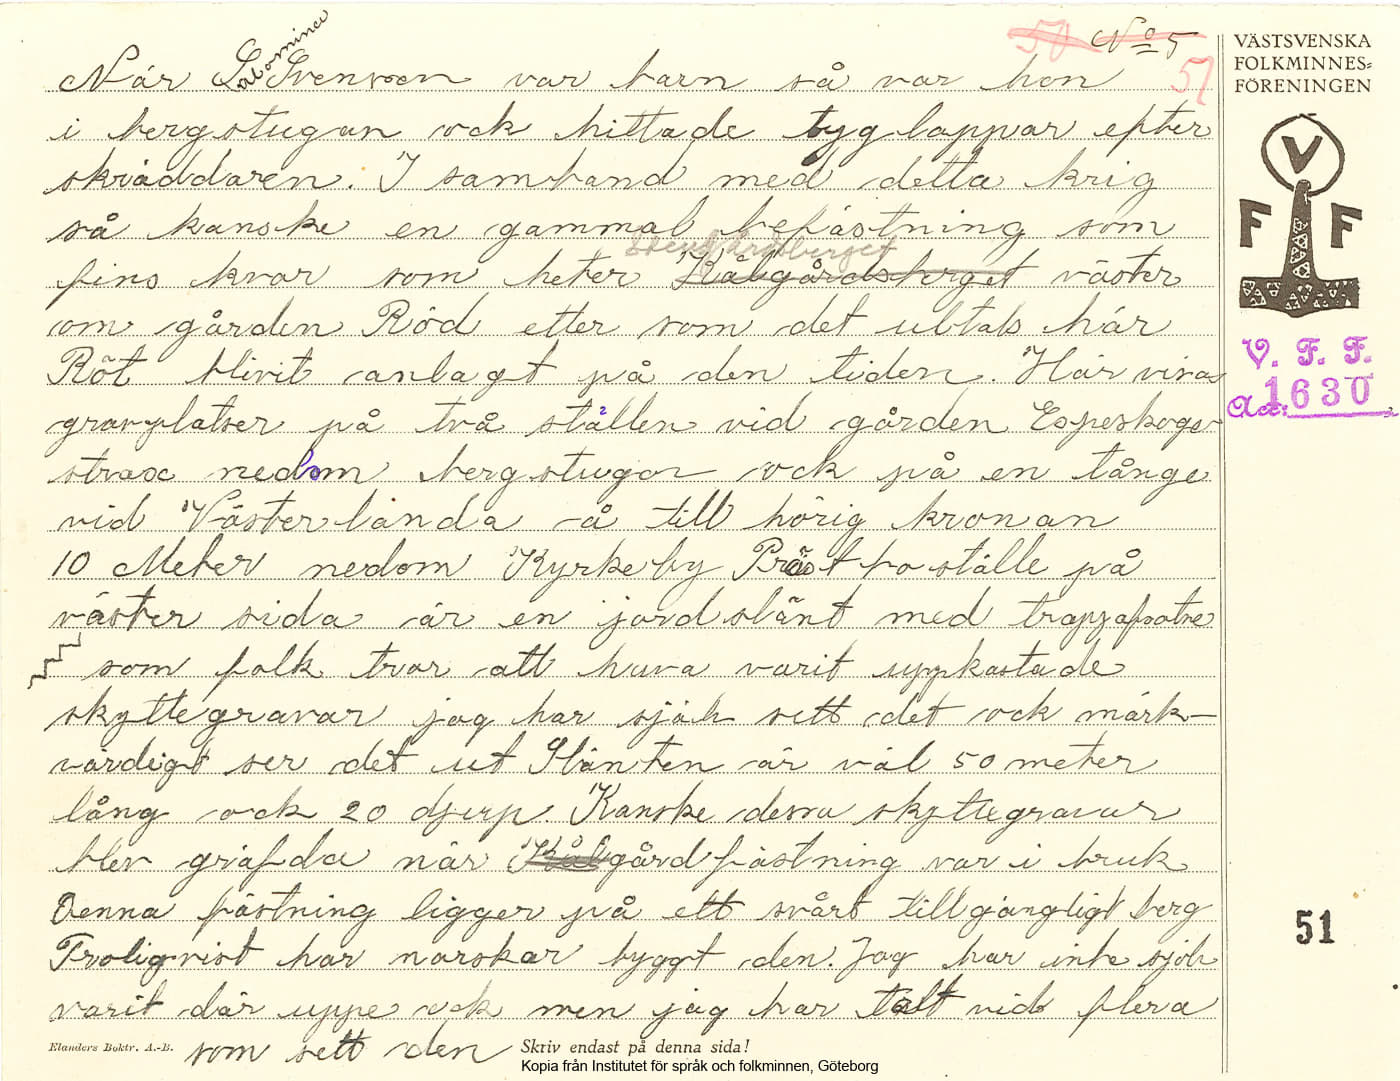 50 No 5
51
När L Svenson var barn så var hon
i bergstugan ock hittade tyglappar efter
skräddaren. I samband med detta krig
så kanske en gammal befästning som
fins kvar som heter Kålgårdsberget väster
om gården Röd etter som det uttals här
Röt blivit anlagt på den tiden. Här visas
gravplatser på två ställen vid gården Espeskogen
strax nedom bergstugan ock på en tånge
vid Västerlanda å till hörig kronan
10 Meter nedom Kyrkeby Präst bo ställe på
väster sida är en jordslänt med trappafsatse
som folk tror att hava varit uppkastade
skyttegravar jag har själv sett det ock märk-
värdigt ser det ut Slänten är väl 50 meter
lång ock 20 djup. Kanske dessa skyttegravar
blev gräfda når Kålgårdfästning var i bruk
Denna fästning ligger på ett svårt tillgängligt berg
Troligvist har norskar byggt den. Jag har inte själv
varit där uppe ock men jag har talt vid flera
som sett den
VÄSTSVENSKA
FOLKMINNES-
FÖRENINGEN
V
F F
V. F. F.
Acc: 1630
51
Elanders Boktr. A.-B.
Skriv endast på denna sida!
Kopia från Institutet för språk och folkminnen, Göteborg